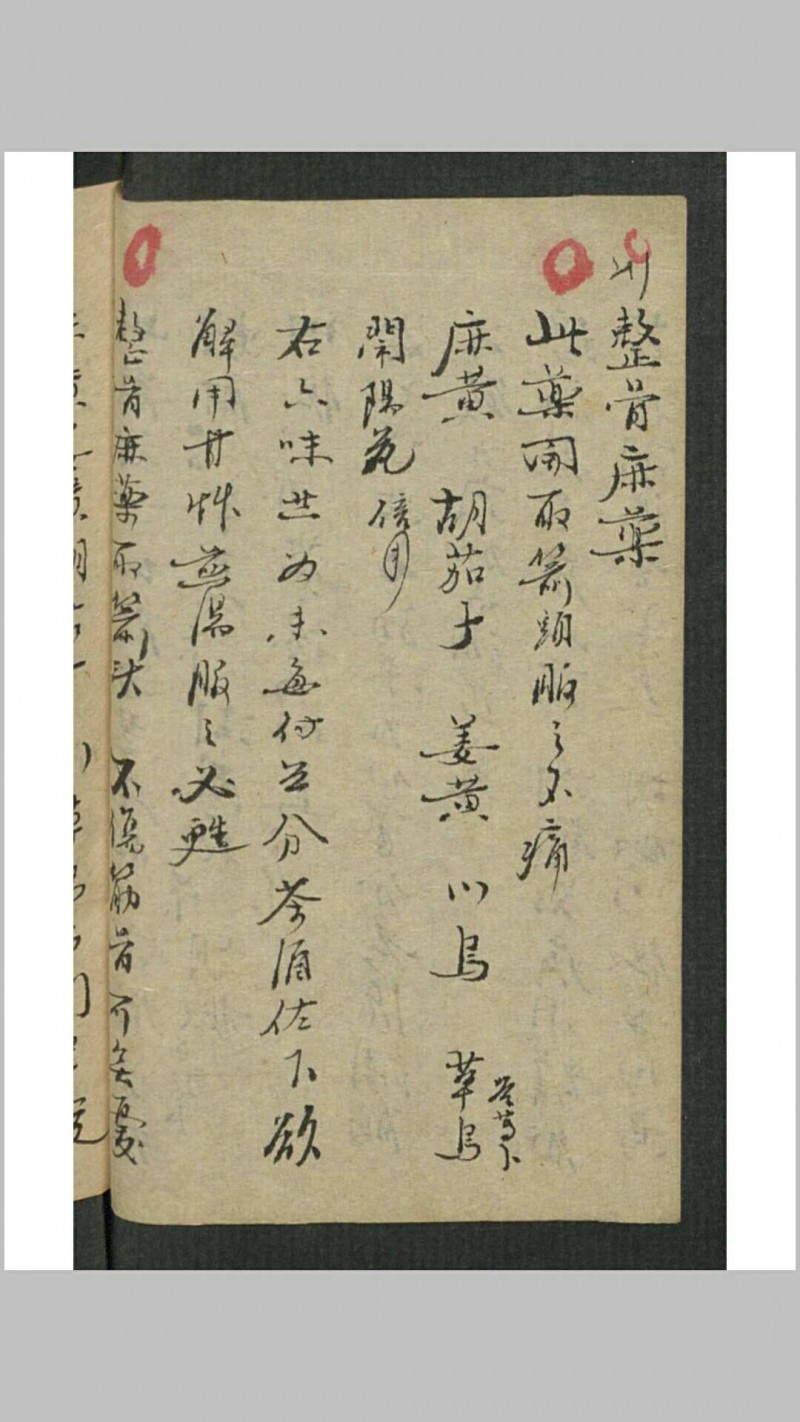 整骨麻藥
此藥開取箭頭服之不痛
麻黃 胡茄子 姜黃 川烏 草烏 各等分
鬧陽花 倍用
右六味共为末每付五分茶酒任下欲
解用甘草湯服之必甦
整骨麻藥取箭头 不傷筋骨可無憂